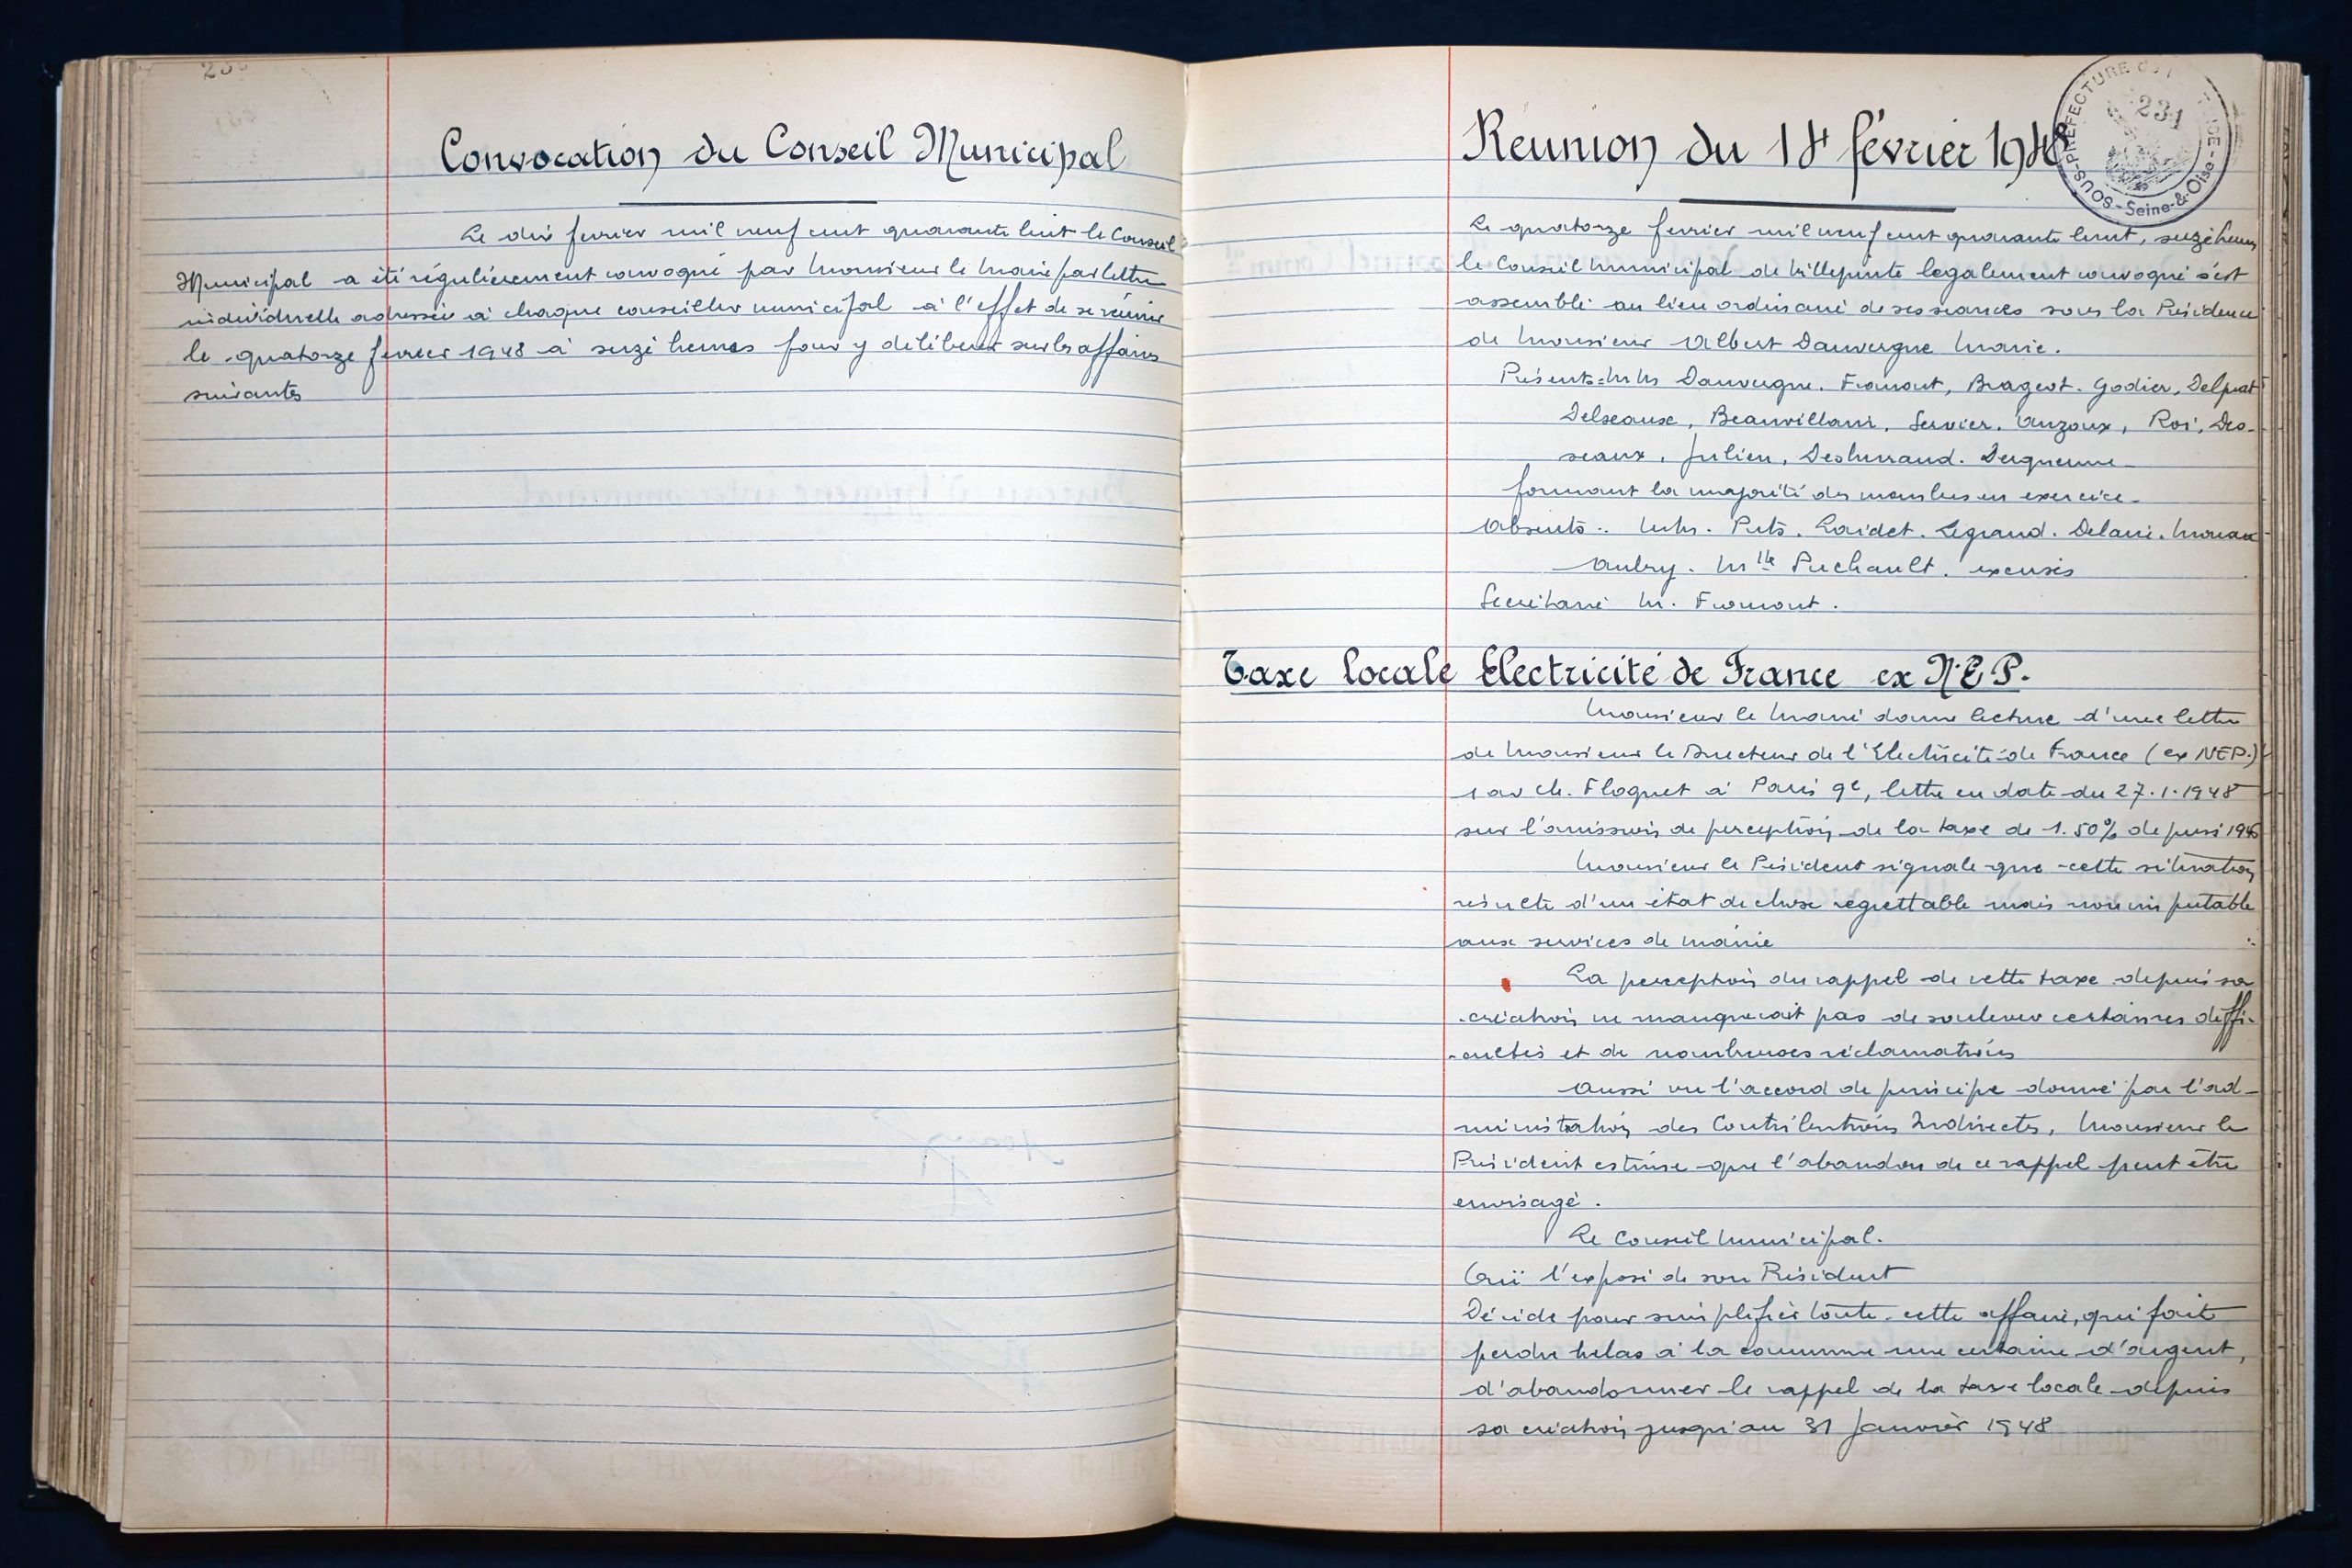 Convocation du Conseil Municipal
Le dix fevrier mil neuf cent quarante huit le Conseil
Municipal a été régulièrement convoqué par Monsieur le Maire par lettre
individuelle adressée à chaque conseiller municipal à l'effet de se réunir
le quatorze fevrier 1948 à seize heures pour y délibérer sur les affaires
suivantes
Réunion du 14 février 1948
SOUS-PREFECTURE de
Seine-&-Oise
231
Le quatorze fevrier mil neuf cent quarante huit, seize heures
le Conseil Municipal de Villepinte legalement convoqué s'est
assemblé au lieu ordinaire de ses seances sous la Présidence
de Monsieur Albert Dauvergne Maire.
Présents: MM Dauvergne. Fromont, Brageot. Godier, Delprat
Delseaux, Beauvillain, Servier. Auzoux, Roi, Des-
seaux, Julien, Deshurraud. Derquenne
formant la majorité des membres en exercice
Absents: MM. Puts. Laidet. Legrand. Delarie. Moreau
Aubry. Mlle Puchault. excusés
Secrétaire M. Fromont.
Taxe locale Electricité de France ex N.E.P.
Monsieur le Maire donne lecture d'une lettre
de Monsieur le Directeur de l'Electricité de France (ex NEP.)
1 av Ch. Floquet à Paris 9e, lettre en date du 27.1.1948
sur l'omission de perception de la taxe de 1.50% depuis 1946
Monsieur le Président signale que cette situation
résulte d'un état de chose regrettable mais non imputable
aux services de mairie
La perception du rappel de cette taxe depuis sa
création ne manquerait pas de soulever certaines diffi-
cultés et de nombreuses réclamations
Aussi vu l'accord de principe donné par l'ad-
ministration des Contributions Indirectes, Monsieur le
Président estime que l'abandon de ce rappel peut être
envisagé.
Le Conseil Municipal.
Ouï l'exposé de son Président
Décide pour simplifier toute cette affaire, qui fait
perdre hélas à la commune une certaine d'argent,
d'abandonner le rappel de la taxe locale depuis
sa création jusqu'au 31 Janvier 1948